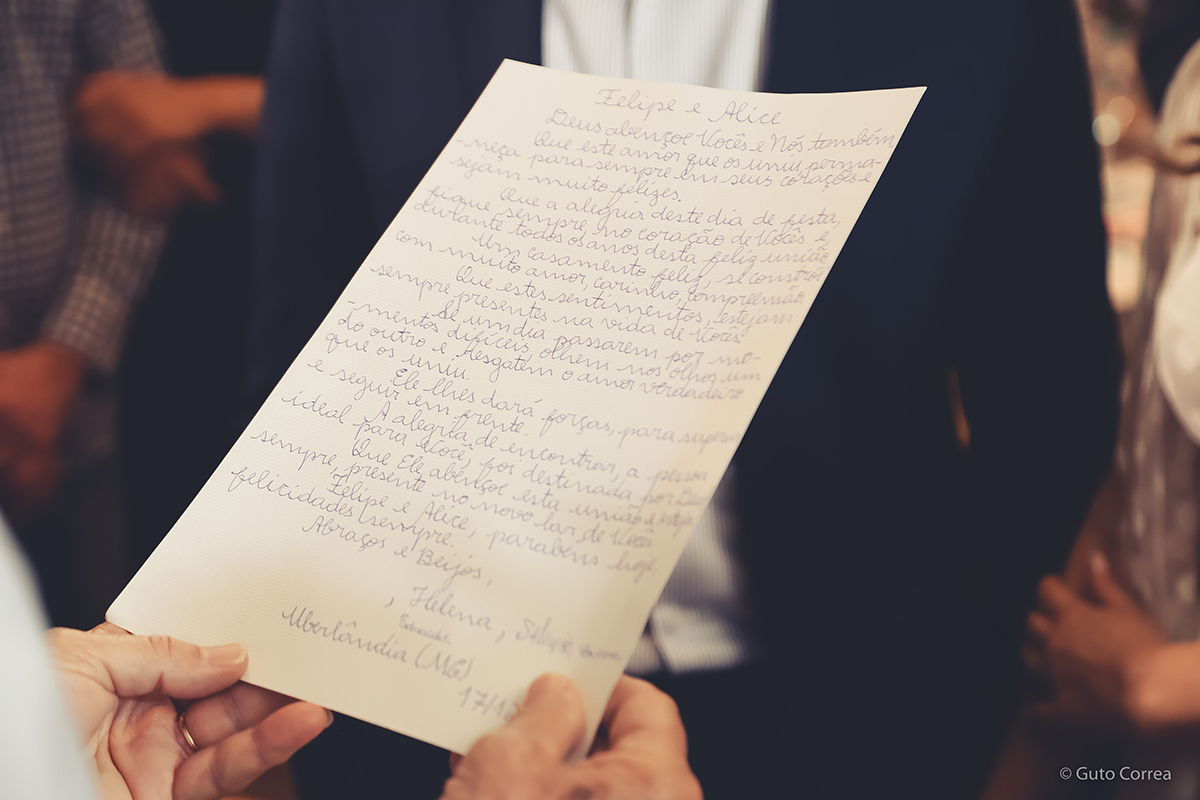 Felipe e Alice
Deus abençoe Vocês e Nós também
Que este amor que os uniu, perma-
-neça para sempre em seus corações e
sejam muito felizes.
Que a alegria deste dia de festa,
fique sempre, no coração de Vocês e,
durante todos os anos desta feliz união
Um casamento feliz, se constrói
com muito amor, carinho, compreensão
Que estes sentimentos, estejam
sempre presentes na vida de Vocês
Se um dia passarem por mo-
-mentos difíceis, olhem nos olhos um
do outro e resgatem o amor verdadeiro
que os uniu.
Ele lhes dará forças, para superar
e seguir em frente.
A alegria, de encontrar, a pessoa
ideal para Você, foi destinada por Deus
Que Ele abençoe esta união e esteja
sempre, presente no novo lar de Vocês
Felipe e Alice, parabens hoje
felicidades sempre.
Abraços e Beijos,
, Helena,
Uberlândia (MG)
17/12
© Guto Correa